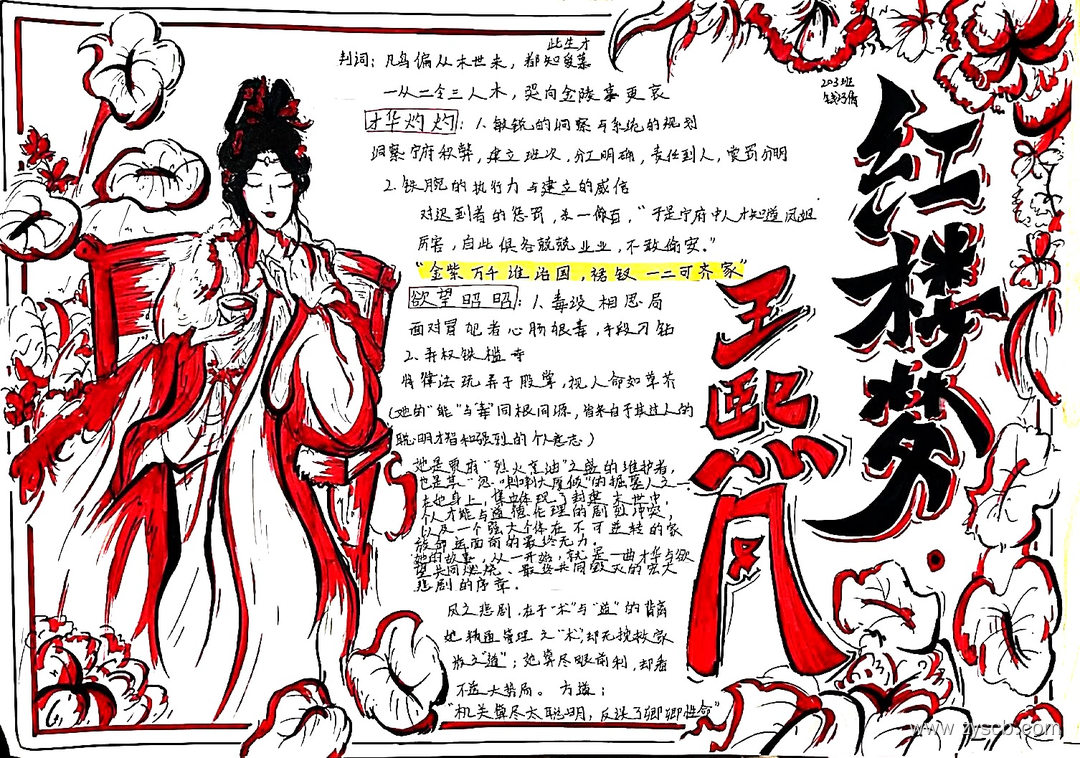 红楼梦·
王熙凤
203班
此生才
判词：凡鸟偏从末世来，都知爱慕
一从二令三人木，哭向金陵事更哀
才华灼灼：1.敏锐的洞察与系统的规划
洞察宁府积弊，建立班次，分工明确，责任到人，赏罚分明
2.铁腕的执行力与建立的威信
对迟到者的惩罚，杀一儆百，“于是宁府中人才知道凤姐
厉害，自此俱各兢兢业业，不敢偷安。”
“金紫万千谁治国，裙钗一二可齐家”
欲望昭昭：1.毒设相思局
面对冒犯者心肠狠毒，手段刁钻
2.弄权铁槛寺
将律法玩弄于股掌，视人命如草芥
（她的“能”与“毒”同根同源，皆来自于其过人的
聪明才智和强烈的个人意志）
她是贾府“烈火烹油”之盛的维护者，
也是其“忽喇喇大厦倾”的掘墓人之一
在她身上，集中体现了封建末世中，
个人才能与道德伦理的剧烈冲突，
以及一个强大个体在不可逆转的家
族命运面前的最终无力。
她的故事，从一开始，就是一曲才华与欲
望共同燃烧、最终共同毁灭的宏大
悲剧的序章。
凤之悲剧，在于“术”与“道”的背离
她精通管理之“术”，却无挽救家
族之“道”；她算尽眼前利，却看
不透大势局。方道：
“机关算尽太聪明，反误了卿卿性命”
www.zyscb.com